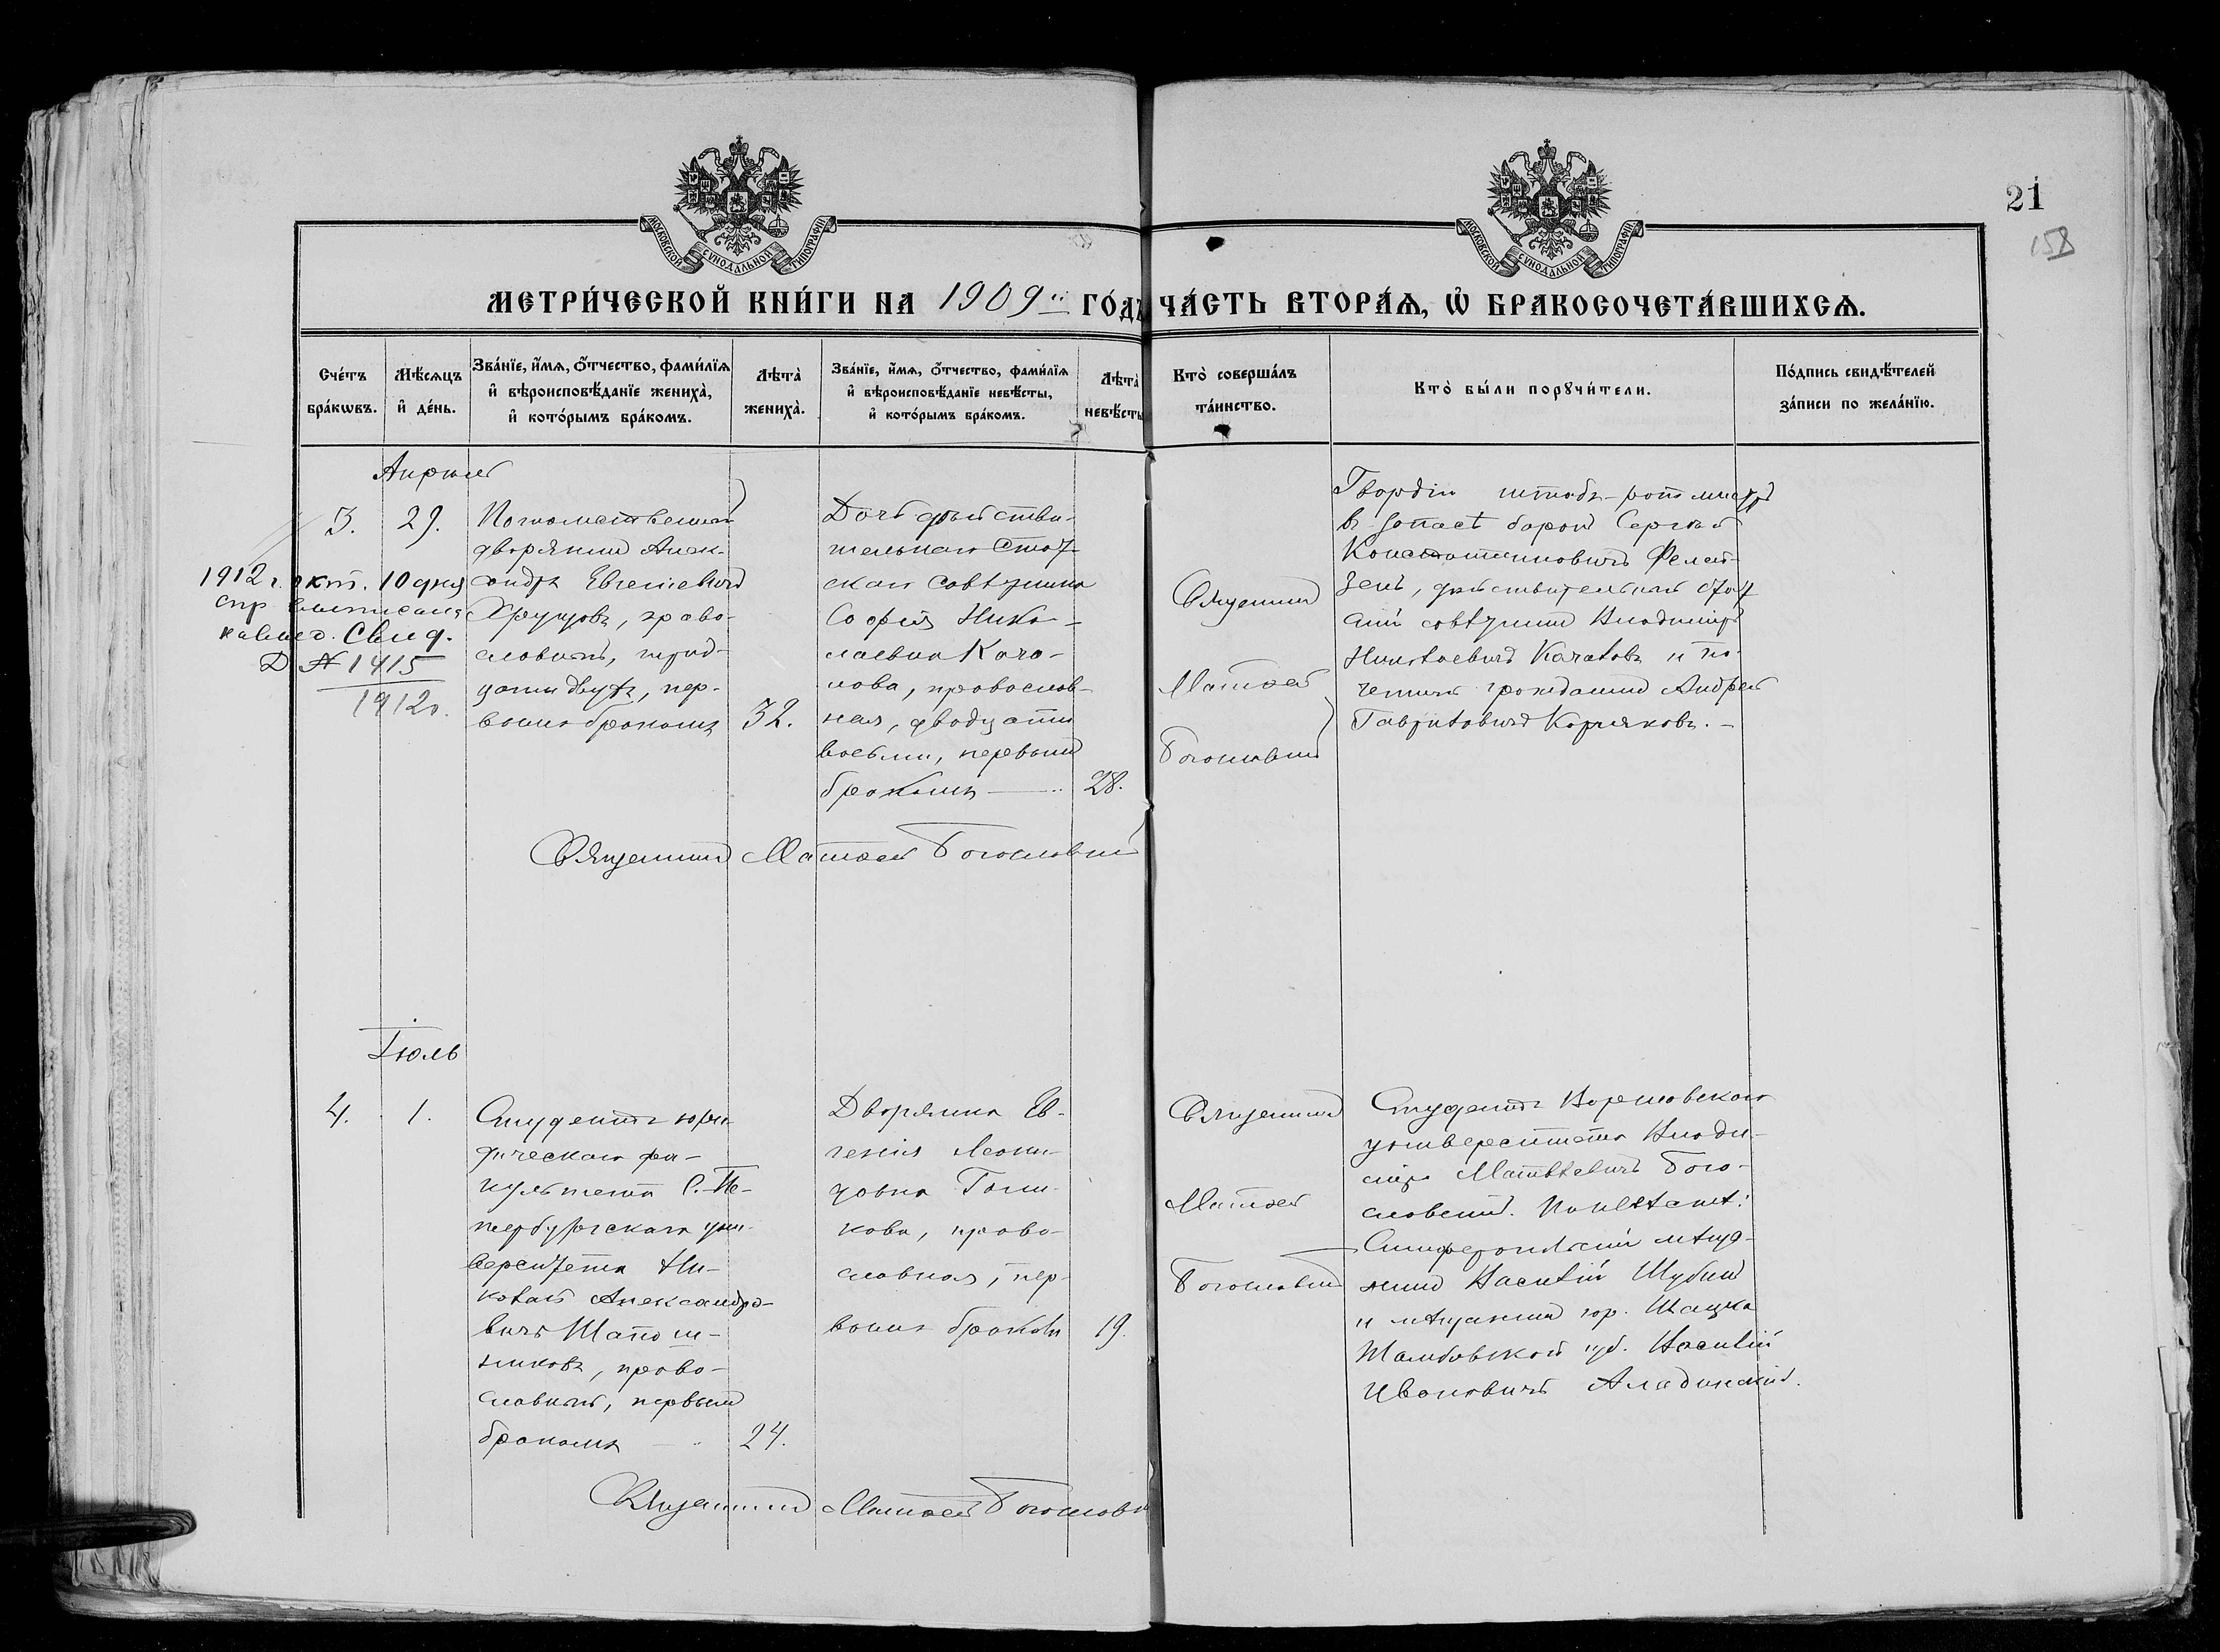 21
158
МОСКОВСКОЙ СѴНОДАЛЬНОЙ ТИПОГРАФІИ
МОСКОВСКОЙ СѴНОДАЛЬНОЙ ТИПОГРАФІИ
МЕТРИ́ЧЕСКОЙ КНИ́ГИ НА 1909й ГО́ДЪ ЧА́СТЬ ВТОРА́Ѧ, Ѽ БРАКОСОЧЕТА́ВШИХСѦ.
Сче́тъ бра́кѡвъ.
Мѣ́сѧцъ и҆ де́нь.
Зва́нїе, и҆́мѧ, ѻ҆́тчество, фами́лїѧ
и҆ вѣроисповѣ́данїе жениха̀,
и҆ кото́рымъ бра́комъ.
Лѣта̀ жениха̀.
Зва́нїе, и҆́мѧ, ѻ҆́тчество, фами́лїѧ
и҆ вѣроисповѣ́данїе невѣ́сты,
и҆ кото́рымъ бра́комъ.
Лѣта̀ невѣ́сты
Кто̀ соверша́лъ та́инство.
Кто̀ бы́ли порꙋчи́тели.
По́дпись свидѣ́телей за́писи по жела́нїю.
Апрѣль
3.
29.
Потомственный
дворянинъ Алек-
сандръ Евгеніевичъ
Хрущовъ, право-
славный, трид-
цати двухъ, пер-
вымъ бракомъ
32.
Дочь дѣйстви-
тельнаго Стат-
скаго совѣтника
Софія Нико-
лаевна Кача-
лова, православ-
ная, двадцати
восьми, первымъ
бракомъ
28.
Священникъ
Матѳей
Богословскій
Гвардіи штабъ-ротмистръ
въ запасѣ баронъ Сергѣй
Константиновичъ Фелей-
зенъ, дѣйствительный стат
скій совѣтникъ Владиміръ
Николаевичъ Качаловъ и по-
четный гражданинъ Андрей
Гавриловичъ Корзяковъ.
1912 г. окт. 10 дня
Свид.
Д № 1415
1912г.
Священникъ Матѳей Богословскій
Іюль
4.
1.
Студентъ юри-
дическаго фа-
культета С.-Пе-
тербургскаго уни-
верситета Ни-
колай Александро-
вичъ Шапош-
никовъ, право-
славный, первымъ
бракомъ
24.
Дворянка Ев-
генія Леони-
довна Голи-
кова, право-
славная, пер-
вымъ бракомъ
19.
Священникъ
Матѳей
Богословскій
Студентъ Варшавскаго
университета Влади-
міръ Матвѣевичъ Бого-
словскій. По невѣстѣ:
Симферопольскій мѣща-
нинъ Василій Шубинъ
и мѣщанинъ гор. Шацка
Тамбовской губ. Василій
Ивановичъ Аладинскій.
Священникъ Матѳей Богословск